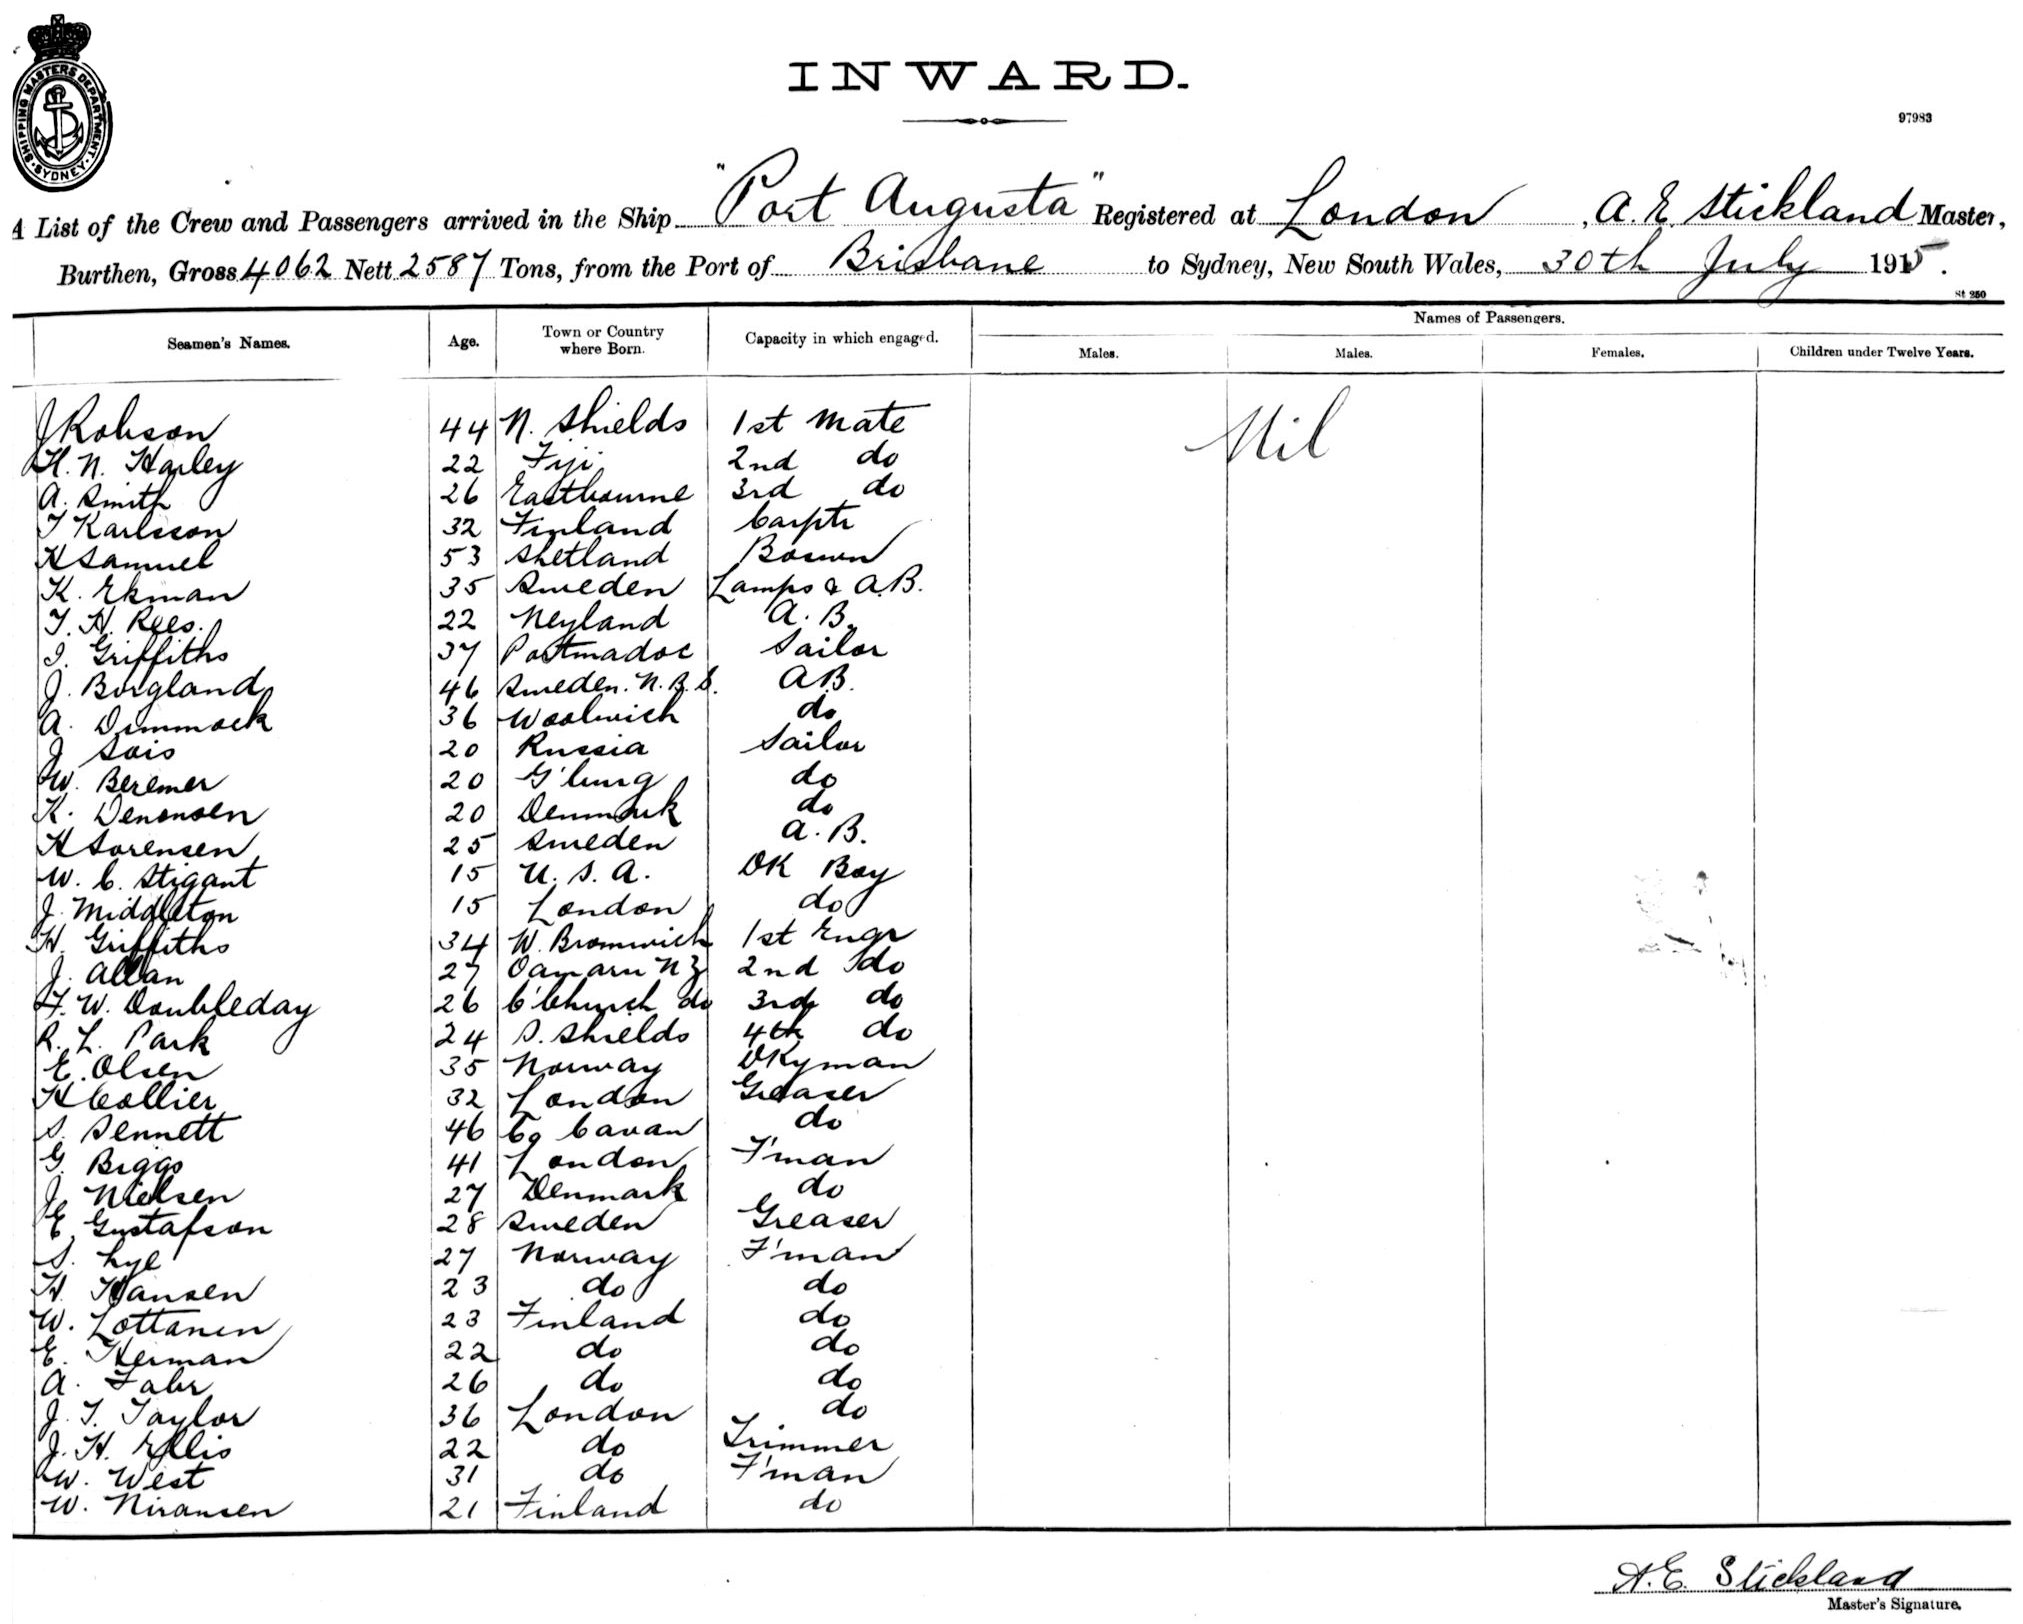 SHIPPING MASTERS DEPARTMENT. SYDNEY
INWARD.
97983
A List of the Crew and Passengers arrived in the Ship "Port Augusta" Registered at London, A. E. Stickland Master,
Burthen, Gross 4062 Nett 2587 Tons, from the Port of Brisbane to Sydney, New South Wales, 30th July 1915.
St 250
Seamen's Names. Age. Town or Country where Born. Capacity in which engaged. Names of Passengers.
Males. Males. Females. Children under Twelve Years.
J Robson 44 N. Shields 1st Mate Nil
H. N. Harley 22 Fiji 2nd do
A. Smith 26 Eastbourne 3rd do
T Karlsson 32 Finland Carptr
H Samuel 53 Shetland Bosun
K. Ekman 35 Sweden Lamps & A.B.
T. H. Rees. 22 Neyland A. B.
I. Griffiths 37 Portmadoc Sailor
J. Borgland 46 Sweden. N.B.S. AB.
A. Dimmock 36 Woolwich do
J Sois 20 Russia Sailor
W. Beremer 20 G'burg do
K. Denonsen 20 Denmark do
H Sorensen 25 Sweden A. B.
W. C. Stigant 15 U. S. A. DK Boy
J. Middleton 15 London do
H. Griffiths 34 W. Bromwich 1st Engr
J. Allan 27 Oamaru NZ 2nd do
F. W. Doubleday 26 C'Church do 3rd do
R. L. Park 24 S. Shields 4th do
E. Olsen 35 Norway DKyman
H Collier 32 London Greaser
S. Sennett 46 Co Cavan do
G. Biggs 41 London F'man
J. Nielsen 27 Denmark do
E. Gustafson 28 Sweden Greaser
S. Lye 27 Norway F'man
H. Hansen 23 do do
W. Lottanen 23 Finland do
E. Herman 22 do do
A. Fabr 26 do do
J. T. Taylor 36 London do
J. H. Ellis 22 do Trimmer
W. West 31 do F'man
W. Niransen 21 Finland do
A. E. Stickland
Master's Signature.